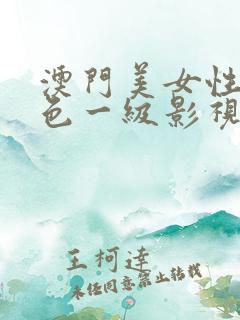 澳門美女性
色一級影視
王柯達
未經同意禁止轉載